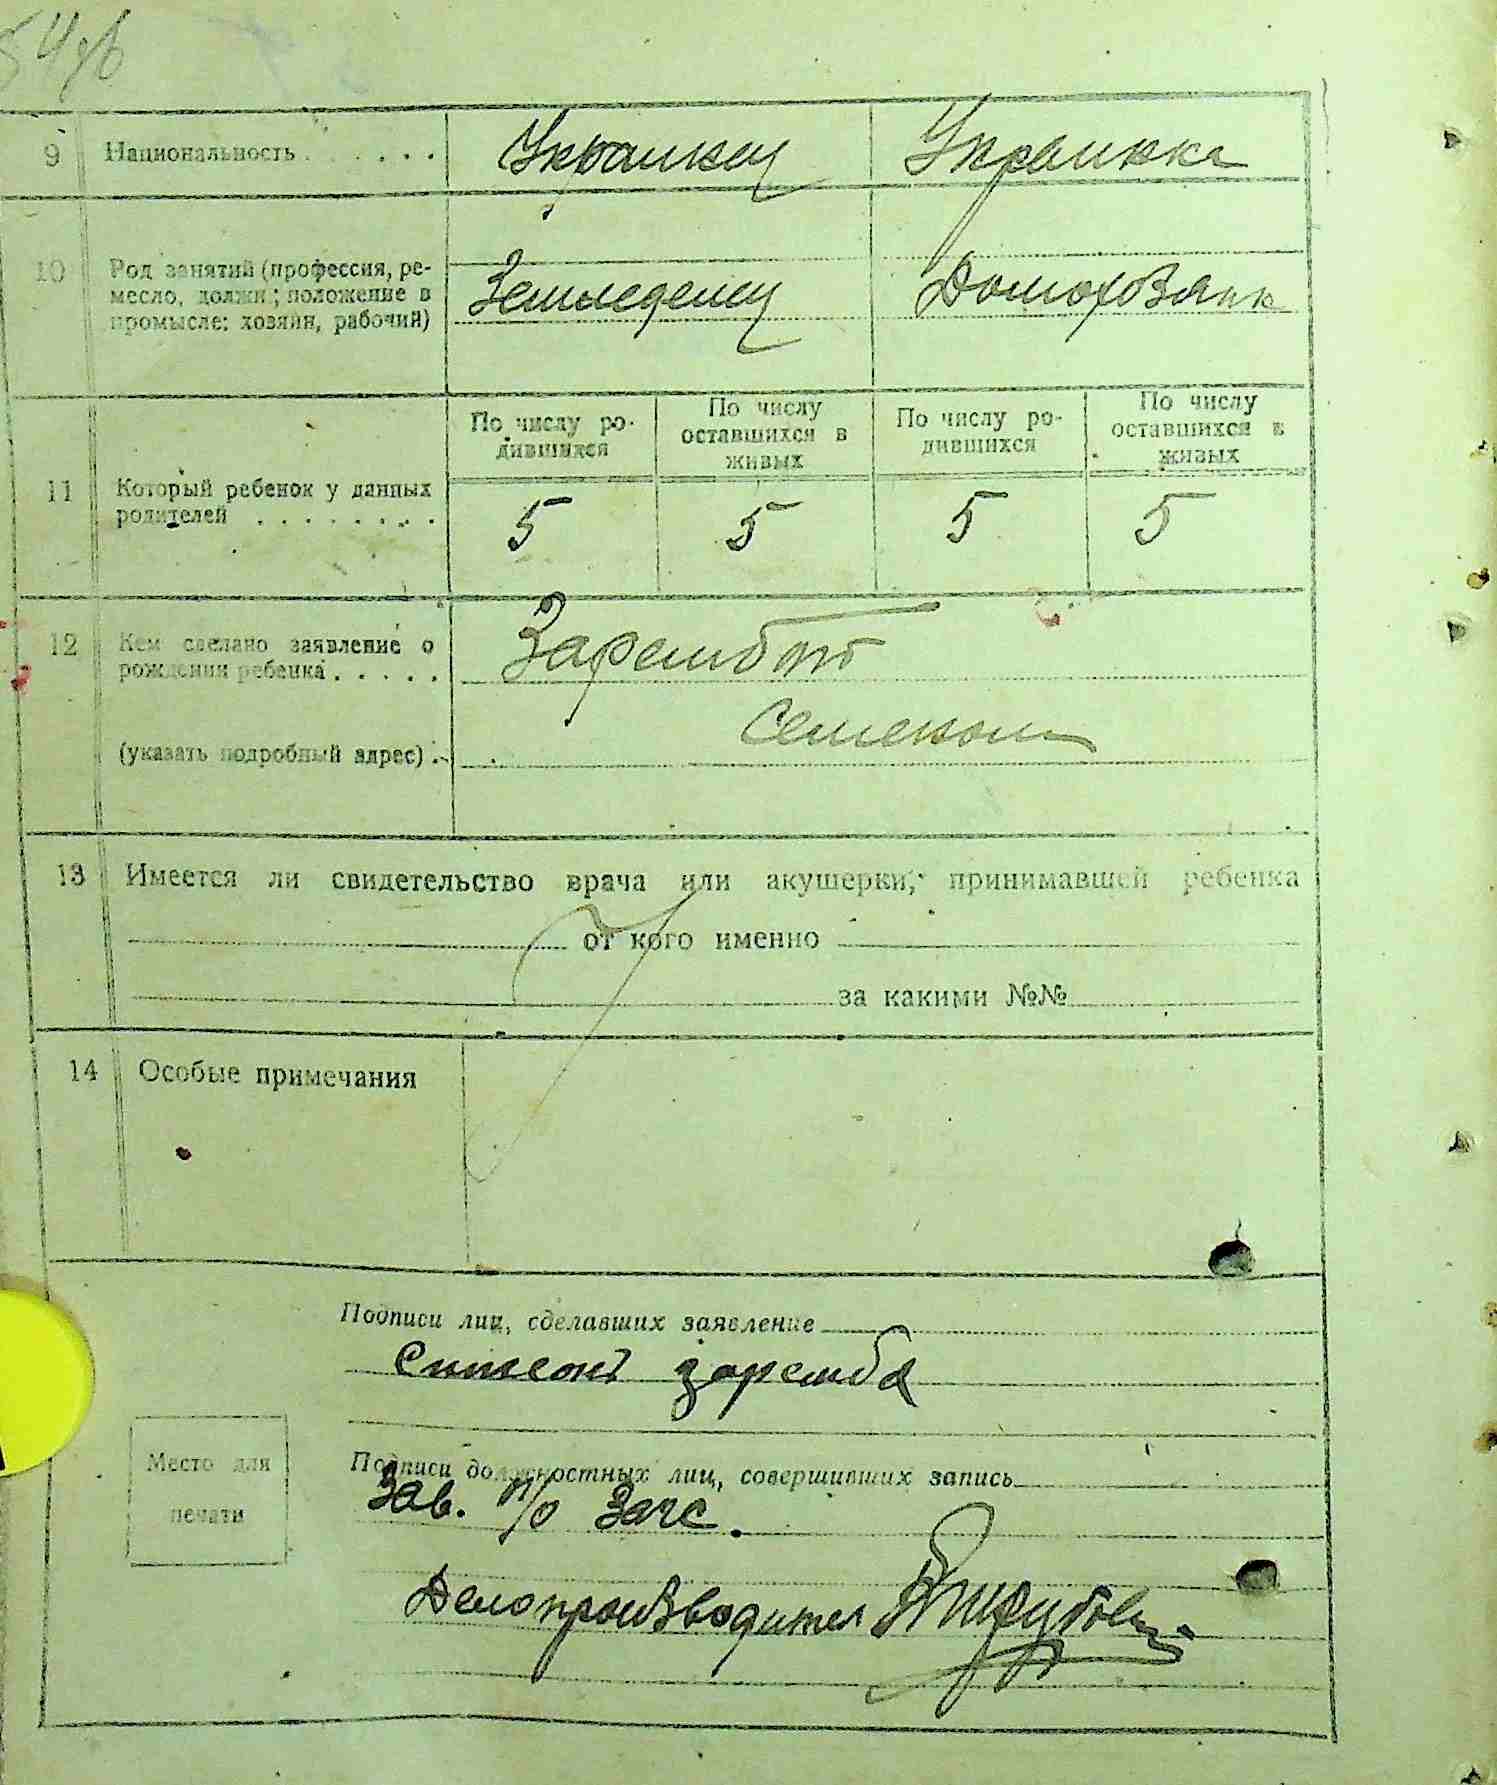 9 Национальность Украинец Украинка
10 Род занятий (профессия, ре-
месло, должн.; положение в
промысле: хозяин, рабочий) Земледелец Домохозяйк
По числу ро-
дившихся
По числу
оставшихся в
живых
По числу ро-
дившихся
По числу
оставшихся в
живых
11 Который ребенок у данных
родителей 5 5 5 5
12 Кем сделано заявление о
рождении ребенка Зарембой
Семеном
(указать подробный адрес)
13 Имеется ли свидетельство врача или акушерки, принимавшей ребенка
от кого именно
за какими №№
14 Особые примечания
Подписи лиц, сделавших заявление
заремба
Место для
печати
Подписи должностных лиц, совершивших запись
Зав. п/о Загс.
Делопроизводител